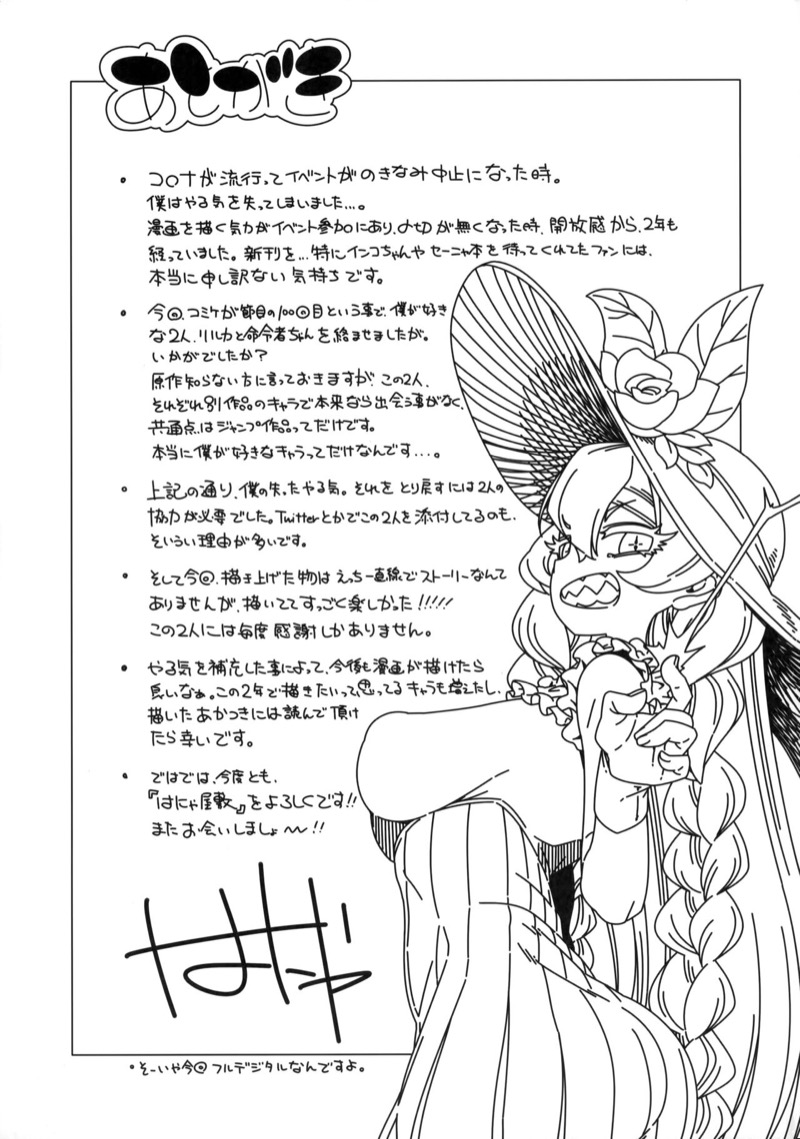 あとがき
・コロナが流行ってイベントがのきなみ中止になった時。
僕はやる気を失ってしまいました…。
漫画を描く気力がイベント参加にあり、〆切が無くなった時、開放感から、2年も
経っていました。新刊を…特にインコちゃんやセーニャ本を待ってくれてたファンには、
本当に申し訳ない気持ちです。
・今回、コミケが節目の100回目という事で、僕が好き
な2人、リルカと命令者ちゃんを絡ませましたが。
いかがでしたか?
原作知らない方に言っておきますが、この2人、
それぞれ別作品のキャラで本来なら出会う事がなく、
共通点はジャンプ作品ってだけです。
本当に僕が好きなキャラってだけなんです…。
・上記の通り、僕の失ったやる気。それをとり戻すには2人の
協力が必要でした。Twitterとかでこの2人を添付してるのも、
そういう理由が多いです。
・そして今回、描き上げた物はえっち一直線でストーリーなんて
ありませんが、描いててすっごく楽しかった!!!!!
この2人には毎度感謝しかありません。
・やる気を補充した事によって、今後も漫画が描けたら
良いなぁ。この2年で描きたいって思ってるキャラも増えたし、
描いたあかつきには読んで頂け
たら幸いです。
・ではでは、今度とも、
『はにゃ屋敷』をよろしくです!!
またお会いしましょ〜!!
はにゃ
・そーいや今回フルデジタルなんですよ。